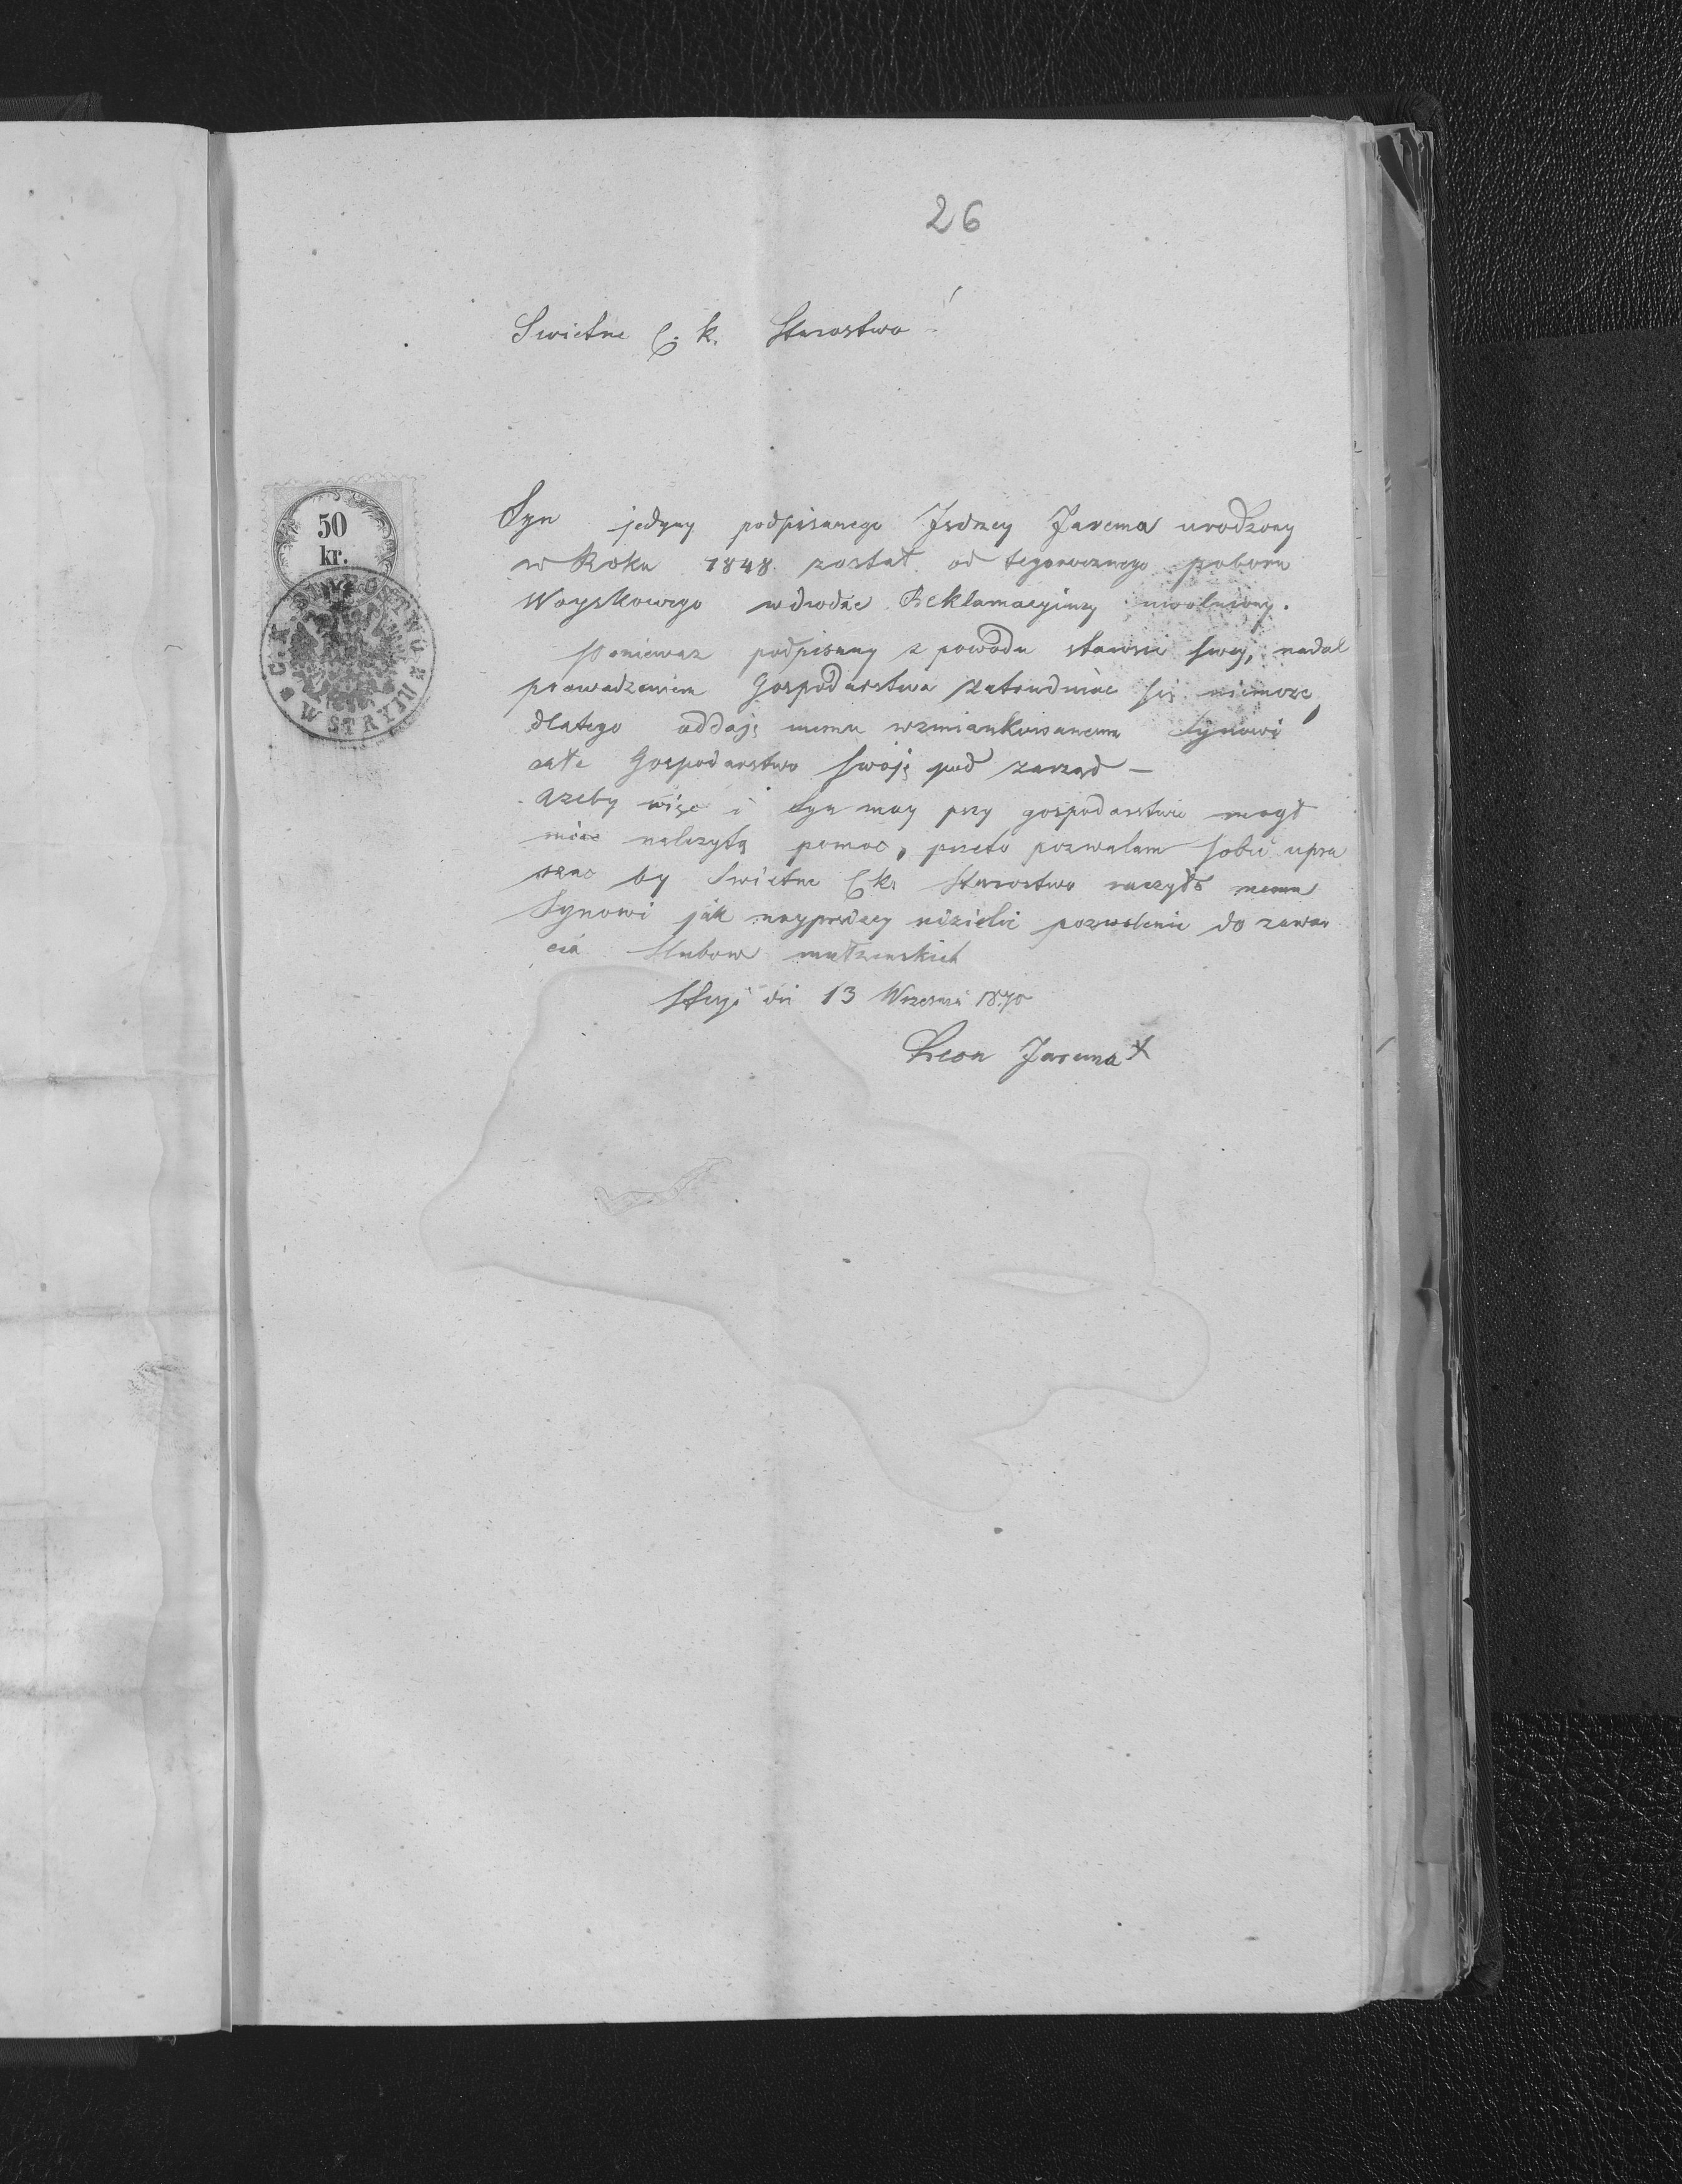 26
Swietne C. k. Starostwo!
50
kr.
C. K. STAROSTWO
W STRYJU
Syn jedyny podpisanego Jędrzey Jarema urodzony
w Roku 1848. został od tegorocznego poboru
Woyskowego wdrodze Reklamacyjney uwolniony.
Poniewaz podpisany z powodu starosci swej, nadal
prowadzeniem Gospodarstwa zatrudniac się niemoze,
dlatego oddaję memu wzmiankowanemu Synowi
całe Gospodarstwo swoje pod zarząd —
Azeby więc i Syn moy przy gospodarstwie mogł
miec nalezytą pomoc, przeto pozwalam sobie upra
szac by Swietne C k. Starostwo raczyło memu
Synowi jak nayprędzey udzielic pozwolenie do zawar
cia slubow małzenskich
Stryj dn 13 Wrzesnia 1870
Leon Jarema X